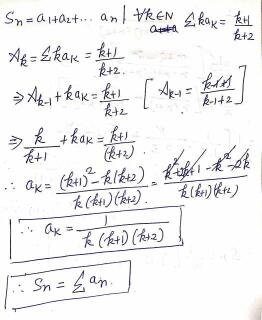 Sn = a1+a2+... an | ∀k∈N Σkak = k+1/k+2
Ak = Σkak = k+1/k+2.
⇒ Ak-1 + kak = k+1/k+2 [Ak-1 = k-1+1/k-1+2]
⇒ k/k+1 + kak = k+1/(k+2).
∴ ak = (k+1)²-k(k+2)/k(k+1)(k+2) = k²+2k+1-k²-2k/k(k+1)(k+2)
∴ ak = 1/k(k+1)(k+2)
∴ Sn = Σan.